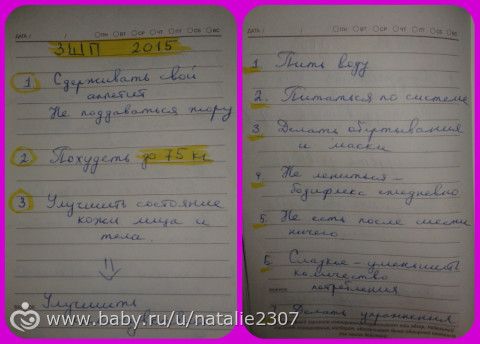 ДАТА / / ПН ВТ СР ЧТ ПТ СБ ВС
ЗШП 2015
1 Сдерживать свой
аппетит
Не поддаваться жору
2 Похудеть до 75 кг
3 Улучшить состояние
кожи лица и
тела.
Улучшить
ДАТА / / ПН ВТ СР ЧТ ПТ СБ ВС
1 Пить воду
2. Питаться по системе
3 Делать обертывания
и маски
4. Не лениться –
бодифлекс ежедневно
5. Не есть после шести
ничего
6. Сладкое – уменьшить
количество
потребления
7 Делать упражнения
www.baby.ru/u/natalie2307